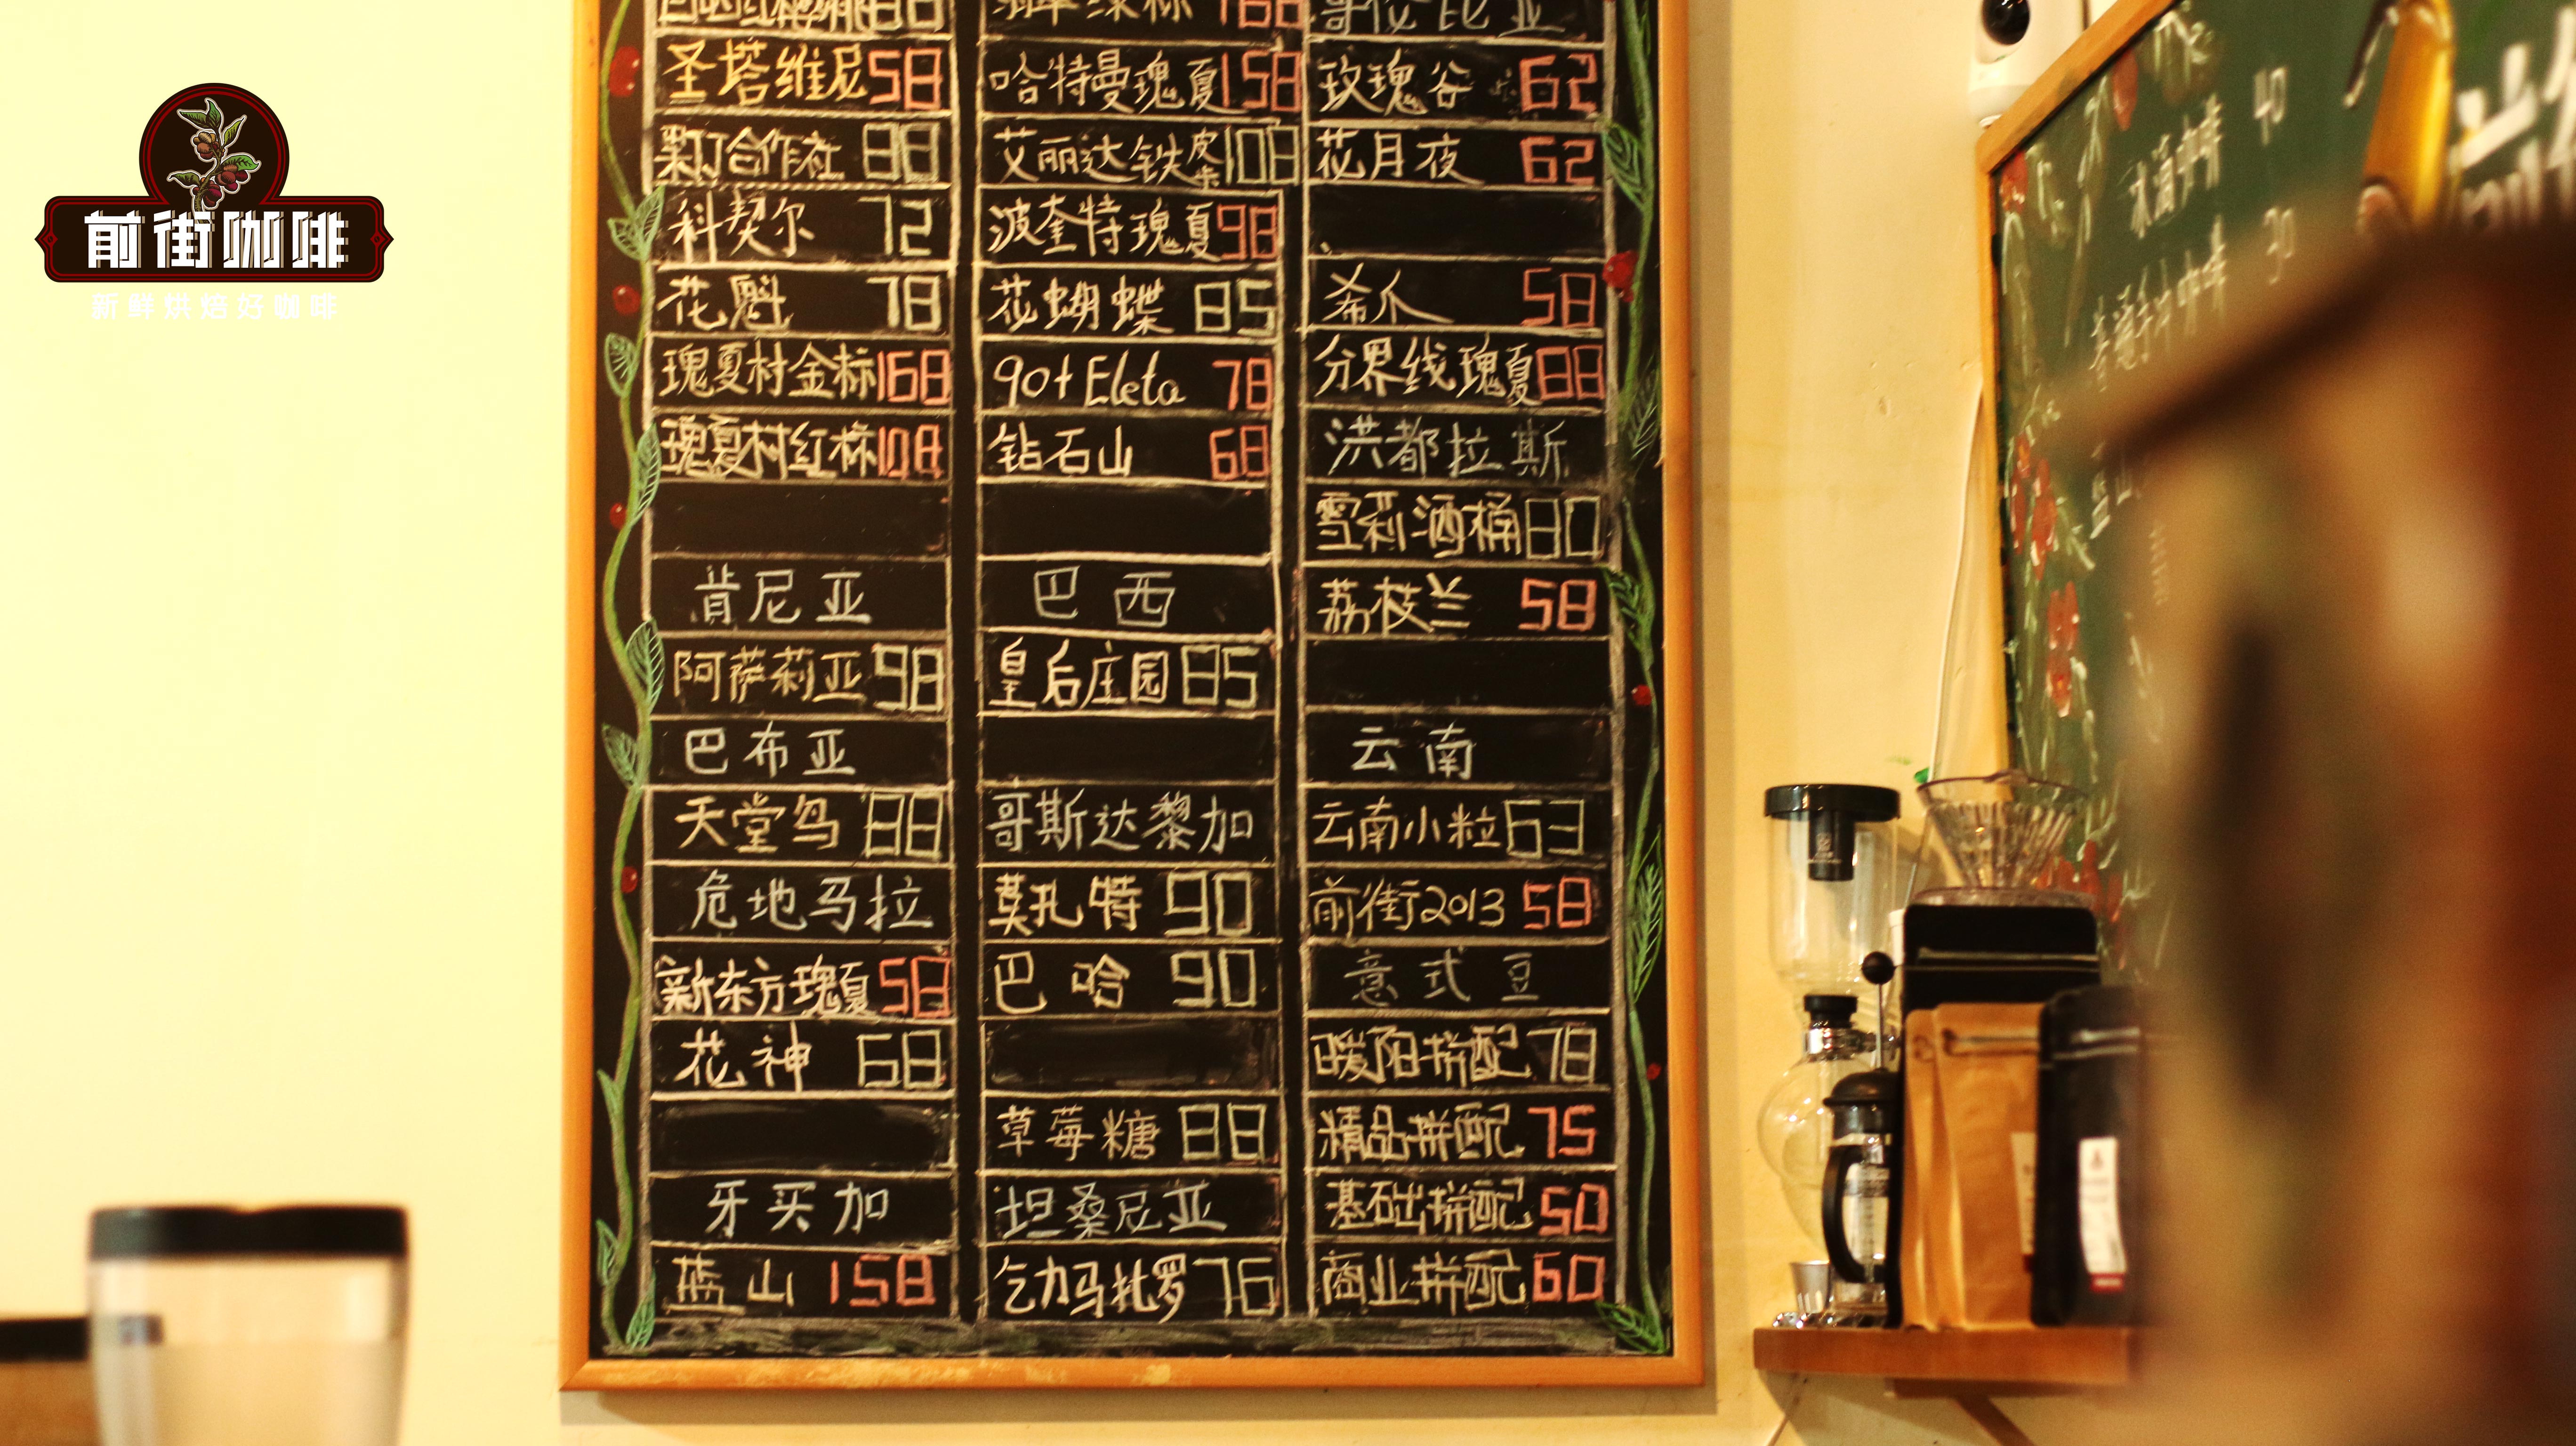 前街咖啡
新鲜烘焙好咖啡
圣塔维尼 58
果丁合作社 88
科契尔 72
花魁 78
瑰夏村金标 168
瑰夏村红标 108
肯尼亚
阿萨莉亚 98
巴布亚
天堂鸟 88
危地马拉
新东方瑰夏 58
花神 68
牙买加
蓝山 158
翡翠绿标 168
哈特曼瑰夏 158
艾丽达铁皮卡 108
波奎特瑰夏 98
花蝴蝶 85
90+ Eleta 78
钻石山 68
巴西
皇后庄园 85
哥斯达黎加
莫扎特 90
巴哈 90
草莓糖 88
坦桑尼亚
乞力马扎罗 76
哥伦比亚
玫瑰谷 62
花月夜 62
希爪 58
分界线瑰夏 88
洪都拉斯
雪莉酒桶 80
荔枝兰 58
云南
云南小粒 63
前街2013 58
意式豆
暖阳拼配 78
精品拼配 75
基础拼配 50
商业拼配 60
水滴咖啡 40
30